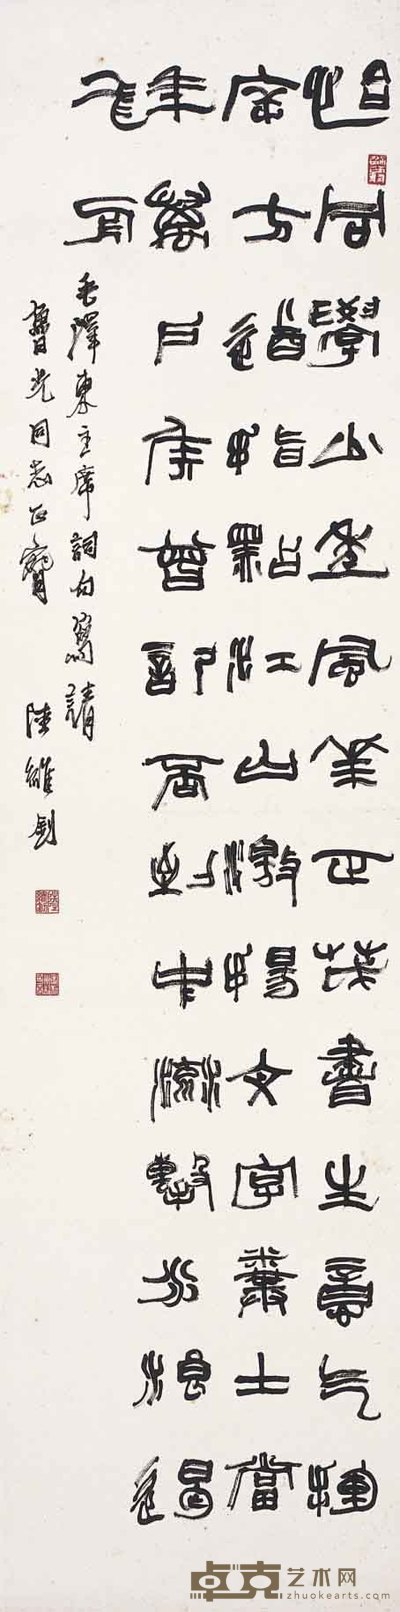 恰同學少年風華正茂書生意气揮
斥方遒指點江山激揚文字糞土當
年萬戶侯曾記否到中流擊水浪遏
飛舟
毛澤東主席詞句寫請
光同志正 陸維釗
卓克艺术网
www.zhuokearts.com